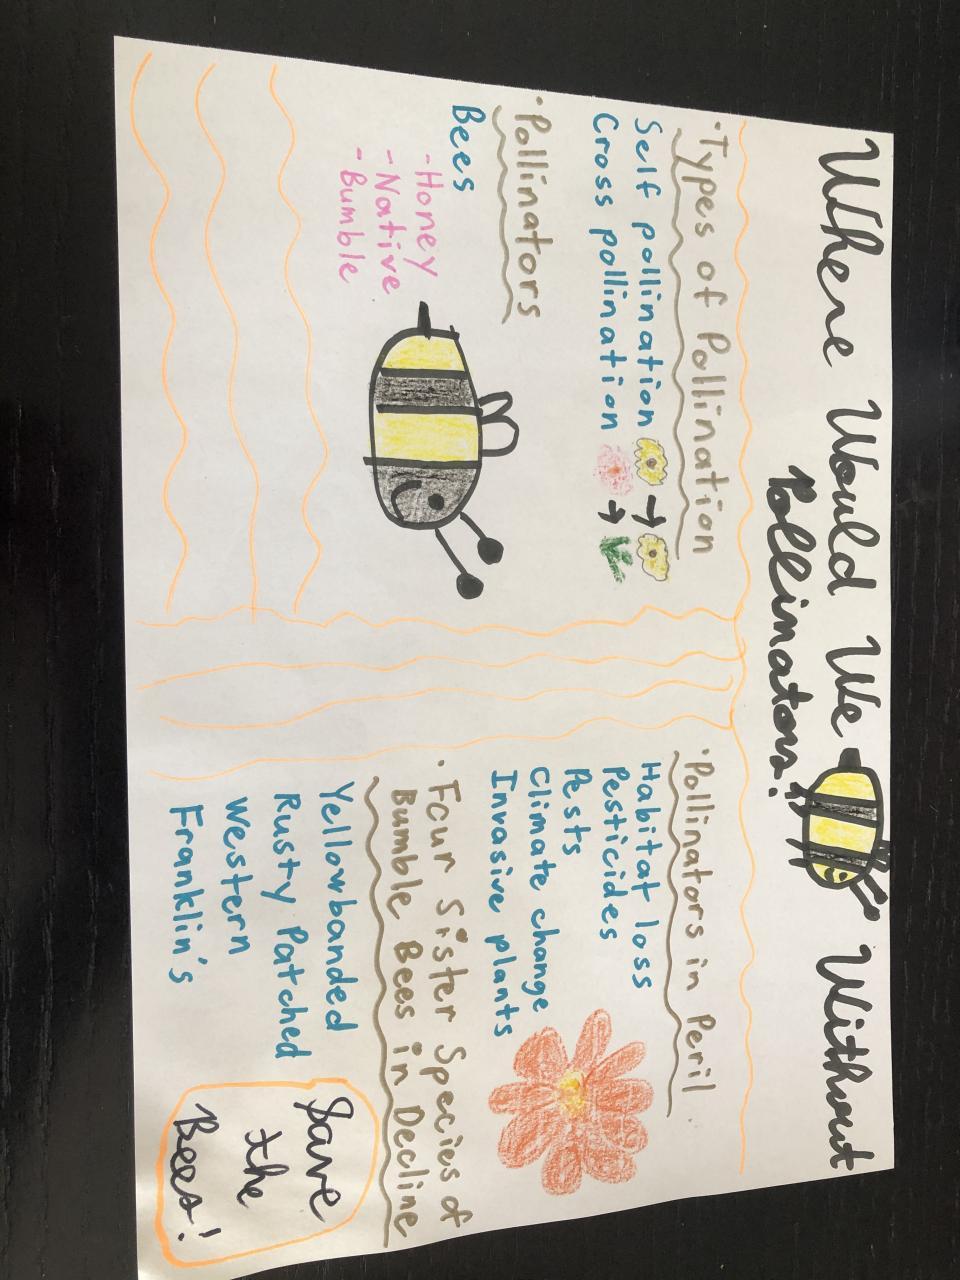 Where Would We Without
Pollinators?
·Types of Pollination
Self pollination →
Cross pollination →
·Pollinators
Bees
-Honey
-Native
-Bumble
·Pollinators in Peril
Habitat loss
Pesticides
Pests
Climate change
Invasive plants
·Four Sister Species of
Bumble Bees in Decline
Yellowbanded
Rusty Patched
Western
Franklin's
Save
the
Bees!